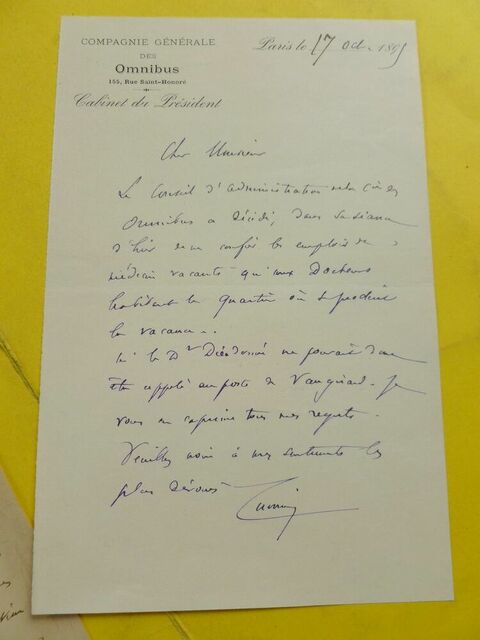 COMPAGNIE GÉNÉRALE
DES
Omnibus
155, Rue Saint-Honoré
Cabinet du Président
Paris le 17 Oct. 189
Cher Monsieur
Le Conseil d'administration de la Cie des
Omnibus a décidé, dans sa séance
d'hier de ne confier les emplois de
médecin vacants qu'aux Docteurs
habitant le quartier où se produit
la vacance.
M. le Dr ne pourrait donc
être appelé au poste de Vaugirard. Je
vous en exprime tous mes regrets.
Veuillez croire à mes sentiments les
plus dévoués